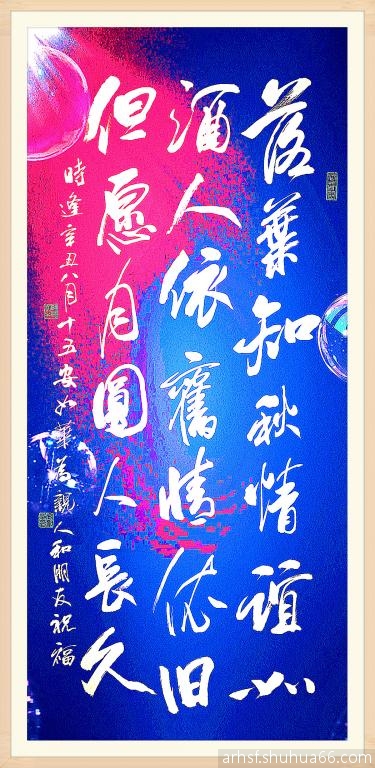 落葉知秋情誼如
酒人依舊情依旧
但愿月圓人長久
時逢辛丑八月十五安如華為親人和朋友祝福
arhsf.shuhua66.com